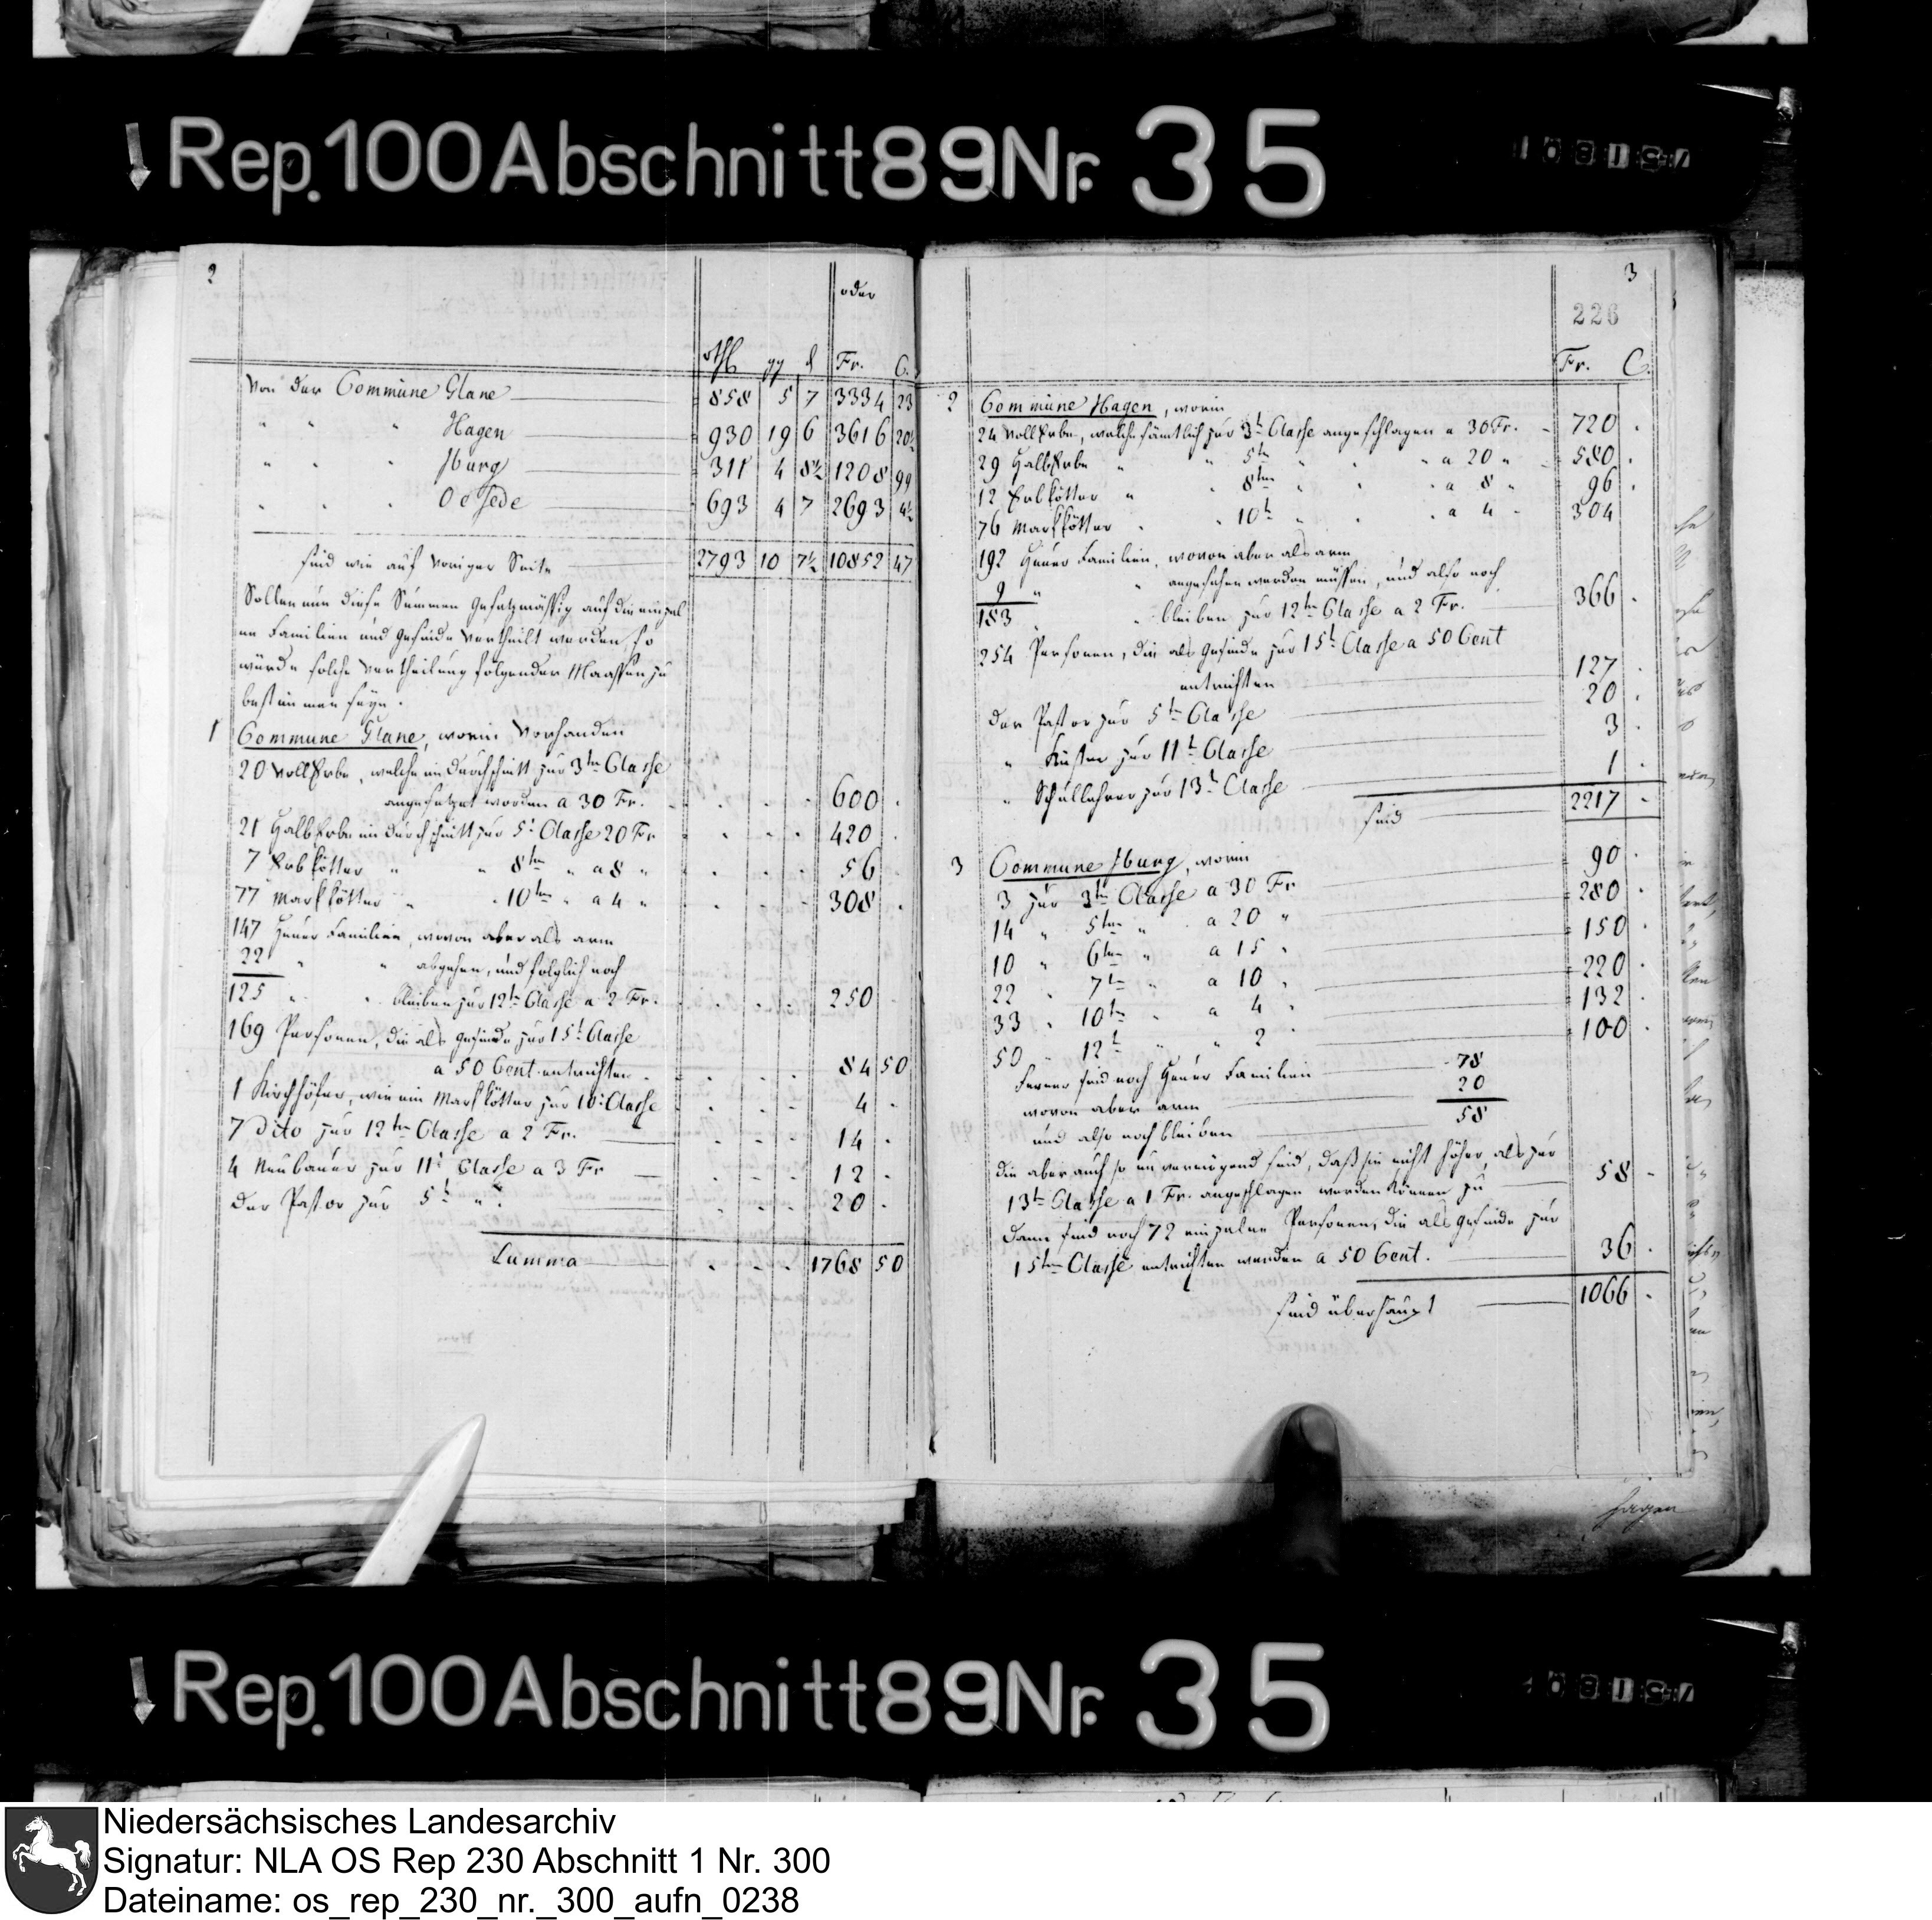 Rep. 100 Abschnitt 89 Nr. 35
2
oder
Rthl gg d Fr. C.
Von der Commüne Glane 858 5 7 3334 23
" " " Hagen 930 19 6 3616 20½
" " " Iburg 311 4 8½ 1208 99
" " " Oesede 693 4 7 2693 4½
sind wie auf voriger Seite 2793 10 7½ 10852 47
Sollen nun diese Summen gesetzmässig auf die einzel
nen Familien und Gesinde vertheilt werden, so
würde solche Vertheilung folgender Maassen zu
bestimmen seyn.
1 Commune Glane, worin vorhanden
20 Vollerbe, welche im Durchschnitt zur 3ten Classe
angesetzet worden a 30 Fr. 600
21 Halberbe im Durchschnitt zur 5t Classe 20 Fr 420
7 Erbkötter " " 8ten " a 8 " 56
77 Markkötter " " 10ten " a 4 " 308
147 Heuer Familien, wovon aber als arm
22 " " abgehen, und folglich noch
125 " " bleiben zur 12ten Classe a 2 Fr. 250
169 Personen, die als Gesinde zur 15t Classe
a 50 Cent entrichten 84 50
1 Kirchhöfer, wie ein Markkötter zur 10t Classe 4
7 dito zur 12ten Classe a 2 Fr. 14
4 Neubauer zur 11t Classe a 3 Fr 12
der Pastor zur 5t " 20
Summa 1768 50
3
226
Fr. C.
2 Commüne Hagen, worin
24 Vollerbe, welche sämtlich zur 3t Classe angeschlagen a 30 Fr. 720
29 Halberbe " " 5ten " " " a 20 " 580
12 Erbkötter " " 8ten " " " a 8 " 96
76 Markkötter " " 10t " " " a 4 " 304
192 Heuer Familien, wovon aber als arm
9 " " angesehen werden müssen, und also noch
183 " " bleiben zur 12ten Classe a 2 Fr. 366
254 Personen, die als Gesinde zur 15t Classe a 50 Cent
entrichten 127
der Pastor zur 5ten Classe 20
" Küster zur 11t Classe 3
" Schullehrer zur 13t Classe 1
sind 2217
3 Commune Iburg, worin
3 zur 3ten Classe a 30 Fr 90
14 " 5ten " a 20 " 280
10 " 6ten " a 15 " 150
22 " 7ten " a 10 " 220
33 " 10ten " a 4 " 132
50 " 12t " " 2 " 100
ferner sind noch Heuer Familien 78
wovon aber arm 20
und also noch bleiben 58
die aber auch so unvermögend sind, daß sie nicht höher, als zur
13t Classe a 1 Fr. angeschlagen werden können zu 58
dann sind noch 72 einzelne Personen, die als Gesinde zur
15ten Classe entrichten werden a 50 Cent. 36
sind überhaupt 1066
Rep. 100 Abschnitt 89 Nr. 35
Niedersächsisches Landesarchiv
Signatur: NLA OS Rep 230 Abschnitt 1 Nr. 300
Dateiname: os_rep_230_nr._300_aufn_0238